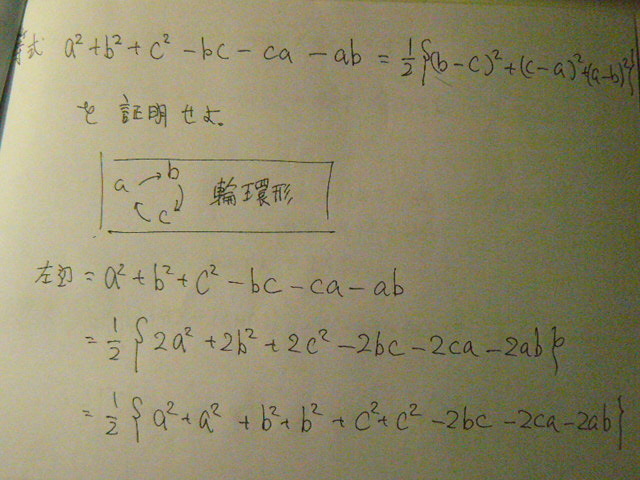 等式 a²+b²+c²-bc-ca-ab = 1/2{(b-c)²+(c-a)²+(a-b)²}
を 証明せよ。
a → b → c → 輪環形
左辺 = a²+b²+c²-bc-ca-ab
= 1/2{2a²+2b²+2c²-2bc-2ca-2ab}
= 1/2{a²+a²+b²+b²+c²+c²-2bc-2ca-2ab}